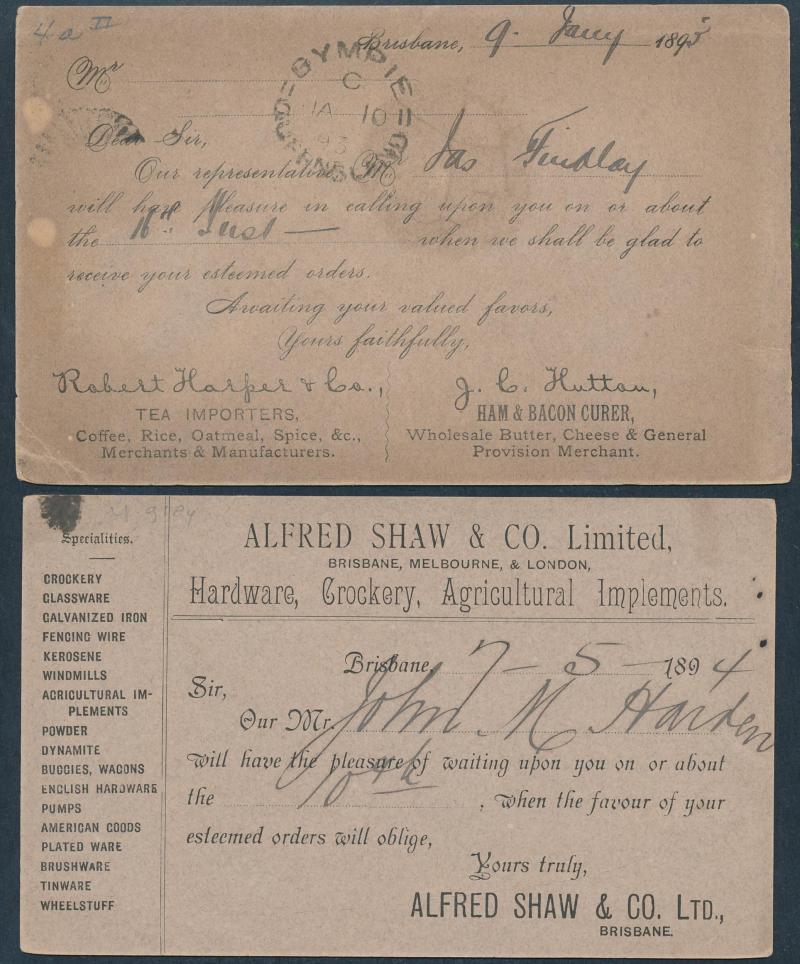 4 a II
Brisbane, 9. Jany 1893
Mr
GYMPIE
C
JA 10
93
QUEENSLAND
Dear Sir,
Our representative Mr Jas Findlay
will have pleasure in calling upon you on or about
the Inst — when we shall be glad to
receive your esteemed orders.
Awaiting your valued favors,
Yours faithfully,
Robert Harper & Co.,
TEA IMPORTERS,
Coffee, Rice, Oatmeal, Spice, &c.,
Merchants & Manufacturers.
J. C. Hutton,
HAM & BACON CURER,
Wholesale Butter, Cheese & General
Provision Merchant.
Specialities.
CROCKERY
GLASSWARE
GALVANIZED IRON
FENCING WIRE
KEROSENE
WINDMILLS
AGRICULTURAL IM-
PLEMENTS
POWDER
DYNAMITE
BUGGIES, WAGONS
ENGLISH HARDWARE
PUMPS
AMERICAN GOODS
PLATED WARE
BRUSHWARE
TINWARE
WHEELSTUFF
ALFRED SHAW & CO. Limited,
BRISBANE, MELBOURNE, & LONDON,
Hardware, Crockery, Agricultural Implements.
Brisbane, 7 – 5 – 1894
Sir,
Our Mr. John M Harden
will have the pleasure of waiting upon you on or about
the 10th, when the favour of your
esteemed orders will oblige,
Yours truly,
ALFRED SHAW & CO. LTD.,
BRISBANE.